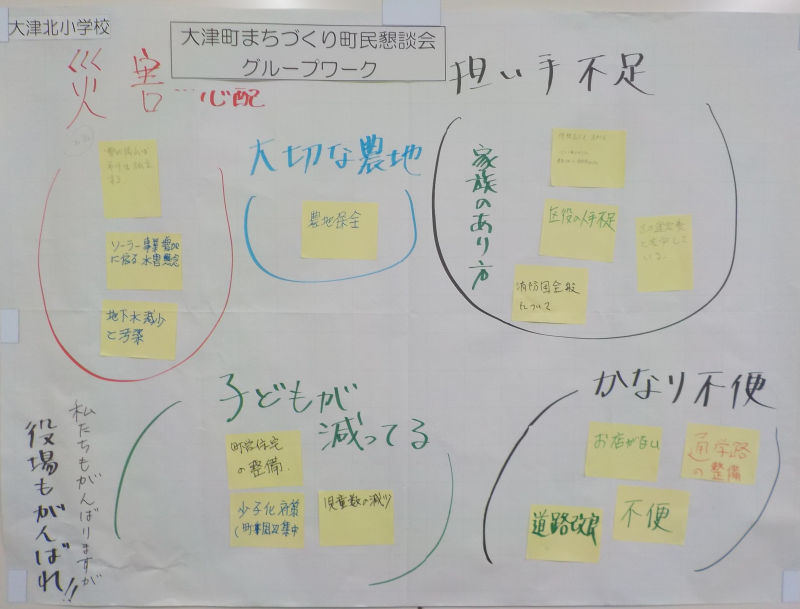 大津北小学校
大津町まちづくり町民懇談会
グループワーク
災害
…心配
ソーラー事業増加
に宿る水害懸念
地下水減少
と汚染
大切な農地
農地保全
担い手不足
家族のあり方
区役の人手不足
消防団全般
について
子どもが
減ってる
町営住宅
の整備.
少子化対策
(町事周辺集中
児童数の減少
かなり不便
お店がない
通学路
の整備
道路改良
不便
私たちもがんばりますが
役場もがんばれ!!